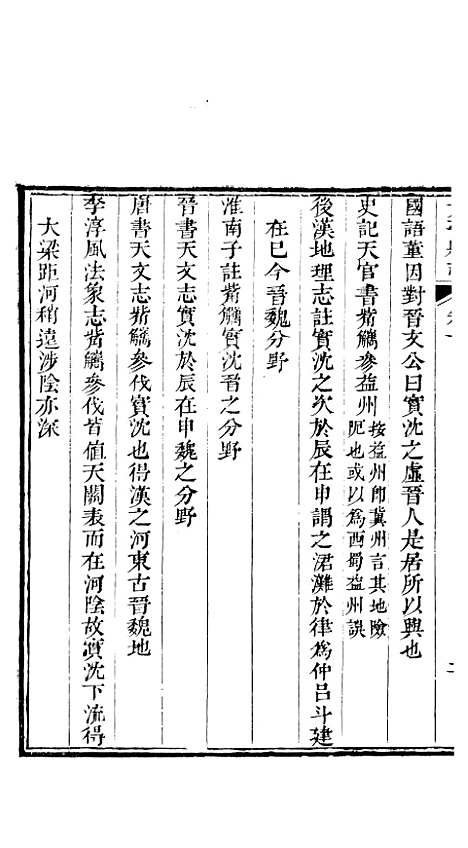 國語董因對晉文公曰實沈之虛晉人是居所以興也
史記天官書觜觿參益州按益州卽冀州言其地險阨也或以爲西蜀益州誤
後漢地理志註實沈之次於辰在申謂之涒灘於律爲仲呂斗建
在巳今晉魏分野
淮南子註觜觿實沈晉之分野
晉書天文志實沈於辰在申魏之分野
唐書天文志觜觿參伐實沈也得漢之河東古晉魏地
李淳風法象志觜觿參伐皆値天關表而在河陰故實沈下流得
大梁距河稍遠涉陰亦深